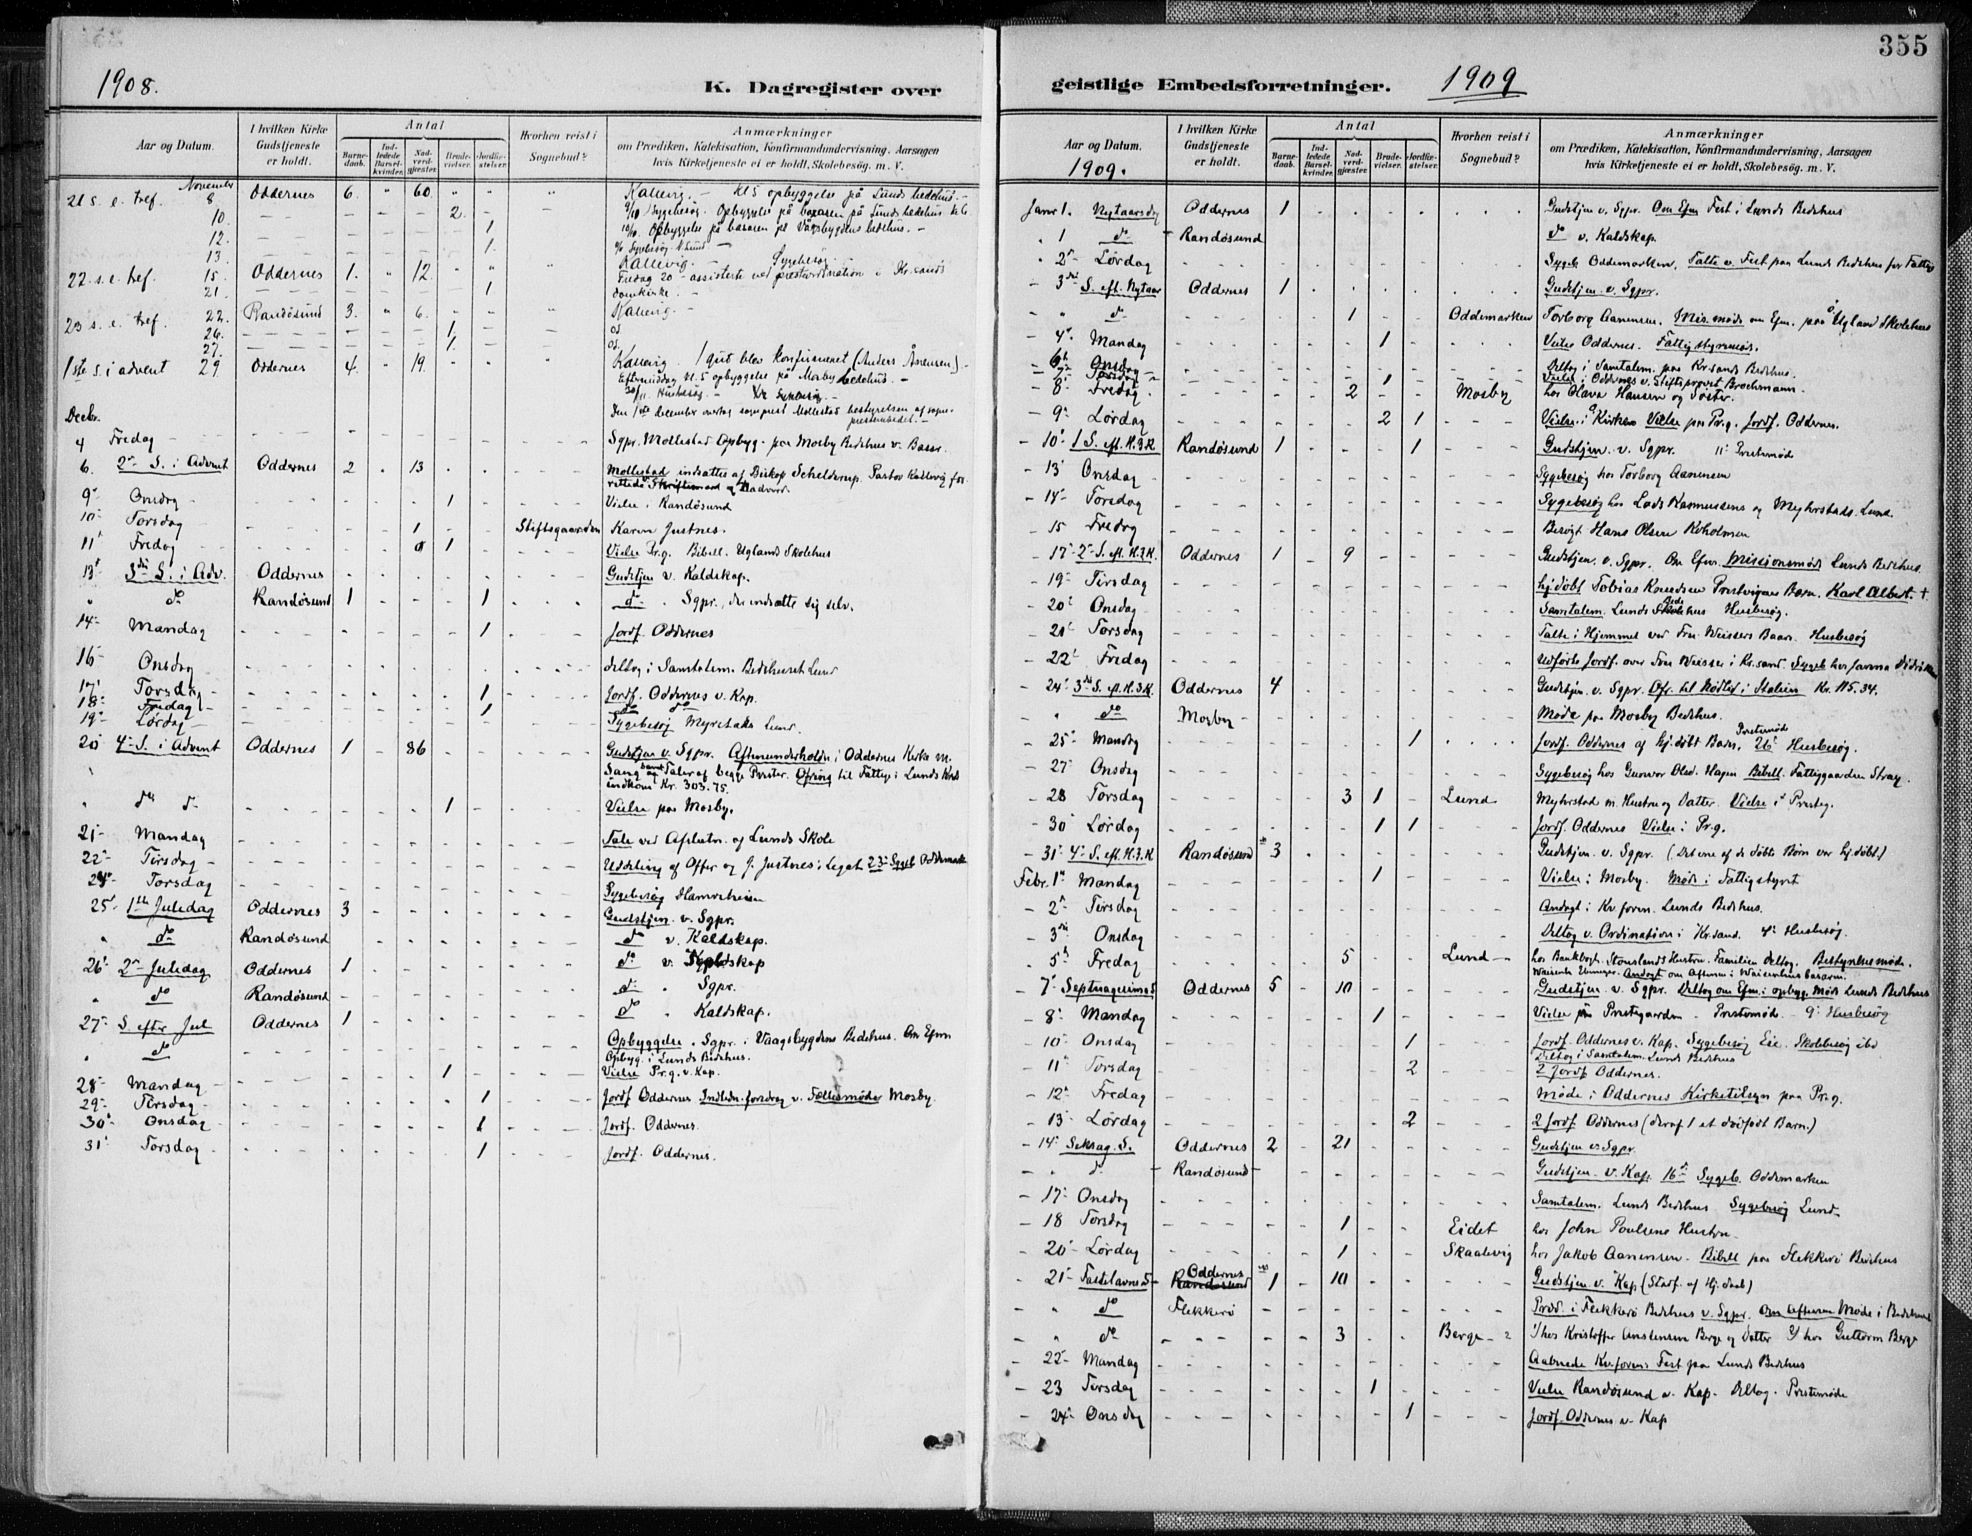 355
1908.
K. Dagregister over
Aar og Datum.
I hvilken Kirke Gudstjeneste er holdt.
Antal
Barnedaab.
Indledede Barselkvinder.
Nadverdgjæster.
Brudevielser.
Jordfæstelser.
Hvorhen reist i Sognebud?
Anmærkninger
om Prædiken, Katekisation, Konfirmandundervisning, Aarsagen
hvis Kirketjeneste ei er holdt, Skolebesøg. m. V.
November
21 s. e. tref. 8 Oddernes 6. " 60. " " " Kallevig. – Kl 5 opbyggelse på Lunds bedehus. –
10. – – – – 2. – – Sygebesøg. Opbyggelse på basaren på Lunds bedehus kl 6
12. – – – – 1 Opbyggelse på basaren på Vågsbygdens bedehus. –
13. – – – – 1. Sygebesøg
22. s. e. tref. 15. Oddernes 1. " 12 " " Kallevig. – Sygebesøg –
Fredag 20 – assisterte ved presteordination i Kr.sands
21. – – – – 1 domkirke. –
23 s. e. tref. 22. Randøsund 3. " 6. " Kallevig. –
26. – – – 1. – –
27. – – – 1. – –
1ste s. i advent 29. Oddernes 4. " 19. " " Kallevig 1 gut blev konfirmeret (Anders Ånensen) –
Eftermiddag kl. 5 opbyggelse på Mosby bedehus. –
Husbesøg. – Sygebesøg. –
Decbr. Den 1ste december overtog sognepræst Mollestad bestyrelsen af sogneprestembedet. –
4 Fredag – Sgpr. Mollestad Opbyg. paa Mosby Bedehus v. Basar.
6. 2n S. i Advent Oddernes 2 . 13 . . . Mollestad indsattes af Biskop Schelderup. Pastor Kallevig forrettede Skriftemaal og Nadverd.
9 Onsdag – 1 Vielse i Randøsund
10 Torsdag – 1 Stiftsgaarden Karen Justnes.
11 Fredag – 1 Vielse Pr.g. Bibell. Uglands Skolehus
13 3die S. i Adv. Oddernes . Gudstjen v. Kaldskap.
" do Randøsund 1 – 1 do . Sgpr., der indsatte sig selv.
14 Mandag – 1 Jordf. Oddernes
16 Onsdag – deltog i Samtalem. Bedehuset Lund
17 Torsdag – 1 Jordf. Oddernes v. Kap.
18 Fredag – 1 do do
19 Lørdag – Sygebesøg Lund.
20 4 S. i Advent Oddernes 1 – 86 Gudstjen v. Sgpr. Aftenunderholdn i Oddernes Kirke m.
Sang samt Taler af begge Prester. Ofring til Fattige i Lunds Kreds
indkom Kr. 303.75.
" do do – 1 Vielse paa Mosby.
21 Mandag – Tale ved Afslutn. af Lunds Skole
22 Tirsdag – Uddeling af Offer og J. Justnes's Legat 23 Sygeb Oddemarken
24 Torsdag – Sygebesøg Hamreheien
25 1ste Juledag Oddernes 3 Gudstjen. v. Sgpr.
" do Randøsund do v. Kaldskap.
26 2n Juledag Oddernes 1 do v. Kaldskap
" do Randøsund – do " Sgpr.
27 S. efter Jul Oddernes 1 do " Kaldskap.
" do Opbyggelse . Sgpr. i Vaagsbygdens Bedehus. Om Efm
Opbyg. i Lunds Bedehus.
28 Mandag – 1 Vielse Pr.g. v. Kap.
29 Tirsdag – 1 Jordf Oddernes Indledn. foredrag v. Fællesmøder Mosby
30 Onsdag – 1 Jordf. Oddernes.
31 Torsdag – 1 Jordf. Oddernes.
geistlige Embedsforretninger. 1909
Aar og Datum.
1909.
I hvilken Kirke Gudstjeneste er holdt.
Antal
Barnedaab.
Indledede Barselkvinder.
Nadverdgjæster.
Brudevielser.
Jordfæstelser.
Hvorhen reist i Sognebud?
Anmærkninger
om Prædiken, Katekisation, Konfirmandundervisning, Aarsagen
hvis Kirketjeneste ei er holdt, Skolebesøg. m. V.
Janr 1. Nytaarsdg Oddernes 1 Gudstjen v. Sgpr. Om Efm Fest i Lunds Bedehus
" 1 do Randøsund do v. Kaldskap.
" 2 Lørdag Sygeb Oddemarken, Talte v. Fest paa Lunds Bedehus for Fattige
– 3die S. eft. Nytaar Oddernes 1 Gudstjen. v. Sgpr.
– " do 1 Oddemarken Torborg Aanensen. Mis.møde om Efm. paa Ugland Skolehus
– 4 Mandag 1 Vielse Oddernes. Fattigstyremøde.
– 6 Onsdag – Deltog i Samtalem. paa Kr.sands Bedehus.
– 7 Torsdag 1 Vielse i Oddernes v. Stiftsprovst Brochmann.
– 8 Fredag 2 Mosby hos Olava Hansen og Søster.
– 9 Lørdag 2 1 Vielse i Kirken Vielse paa Pr.g. Jordf. Oddernes.
– 10 1 S. eft. H.3.K. Randøsund 1 1 Gudstjen. v. Sgpr. 11 Prestemøde
– 13 Onsdag – Sygebesøg hos Torborg Aanensen
– 14 Torsdag Sygebesøg hos Lods Rasmussens og Myhrstads. Lund.
– 15 Fredag Besøgt Hans Olsen Koholmen
– 17 2 S. eft. H.3.K. Oddernes 1 – 9 Gudstjen. v. Sgpr. Om Efm. Missionsmøde Lunds Bedehus.
– 19 Tirsdag hj.døbt Tobias Knudsen Prestvignes Barn. Karl Albert. +
– 20 Onsdag Samtalem. Lunds Bedehus Husbesøg.
– 21 Torsdag Talte i Hjemmet ved Fru Weissers Baare. Husbesøg
– 22 Fredag Udførte Jordf. over Fru Weisser i Kr.sand Sygeb hos
– 24 3die S. eft. H.3.K. Oddernes 4 Gudstjen. v. Sgpr. Ofr. til Nødlid i Italien Kr. 115.34.
– " do Mosby Møde paa Mosby Bedehus.
– 25 Mandag 1 Jordf. Oddernes af hj.døbt Barn. Prestemøde 26 Husbesøg.
– 27 Onsdag Sygebesøg hos Gunvor Hagen Bibell. Fattiggaarden Stray.
– 28 Torsdag 3 1 – Lund Myhrstad m. Hustru og Datter. Vielse i Presteg.
– 30 Lørdag 1 1 Jordf. Oddernes Vielse i Pr.g.
– 31 4 S. eft. H.3.K. Randøsund 3 Gudstjen. v. Sgpr. (Det ene af de døbte Børn var hj.døbt.)
Febr. 1 Mandag 1 Vielse i Mosby. Møde i Fattigstyret
– 2 Tirsdag Andagt i Kv.foren. Lunds Bedehus.
– 3die Onsdag Deltog v. Ordination i Kr.sand. 4 Husbesøg.
. 5 Fredag 5 Lund – hos Bankbogh. Stenslands Hustru. Familien deltog. Bestyrelsesmøde.
Andagt om Aftenen i Waisenhus basaren.
– 7 Septuagesima S Oddernes 5 – 10 Gudstjen. v. Sgpr. Deltog om Efm. i opbygg. Møde Lunds Bedehus
– 8 Mandag 1 Vielse paa Prestegaarden – Prestemøde. 9 Husbesøg
– 10 Onsdag 1 Jordf. Oddernes v. Kap. Sygebesøg Eie. Skolebesøg ibd
Deltog i Samtalem. Lunds Bedehus
– 11 Torsdag 2 2 Jordf Oddernes.
– 12 Fredag Møde i Oddernes Kirketilsyn paa Pr.g.
– 13 Lørdag 2 2 Jordf Oddernes (deraf 1 et dødfødt Barn.)
– 14 Seksag. S. Oddernes 2 21 Gudstjen v. Sgpr.
– " do Randøsund – Gudstjen. v. Kap. 16 Sygeb. Oddemarken
– 17 Onsdag Samtalem. Lunds Bedehus Sygebesøg Lund
– 18 Torsdag 1 Eidet hos John Poulsens Hustru.
– 20 Lørdag 1 Skaalevig hos Jakob Aanensen. Bibell paa Flekkerø Bedehus
– 21 Fastelavns S Oddernes Randøsund 1 – 10 Gudstjen. v. Kap (Stadf. af Hj.daab)
– " do Flekkerø Præd. i Flekkerø Bedehus v. Sgpr. Om Aftenen Møde i Bedehuset
– " do 3 Berge – 2 1/ hos Kristoffer Anstensen Berge og Datter 2/ hos Guttorm Berge
– 22 Mandag Aabnede Kv.forens Fest paa Lunds Bedehus
– 23 Tirsdag 1 Vielse Randøsund v. Kap. Deltog. Prestemøde
– 24 Onsdag 1 Jordf. Oddernes v. Kap